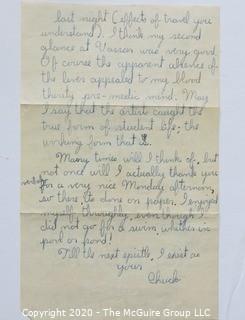 last night (effects of travel you
understand). I think my second
glance at Vassar was very good.
Of course the apparent absence of
the liver appealed to my blood
thirsty pre-medic mind. May
I say that the artist caught the
true form of student life; the
working form that is.
Many times will I think of, but
not once will I actually thank you
for a very nice Monday afternoon,
so there its done on paper. I enjoyed
myself thoroughly, even though I
did not go for a swim whether in
pool or pond!
Till the next epistle, I exist as
yours
Chuck
Copyright 2020 - The McGuire Group LLC